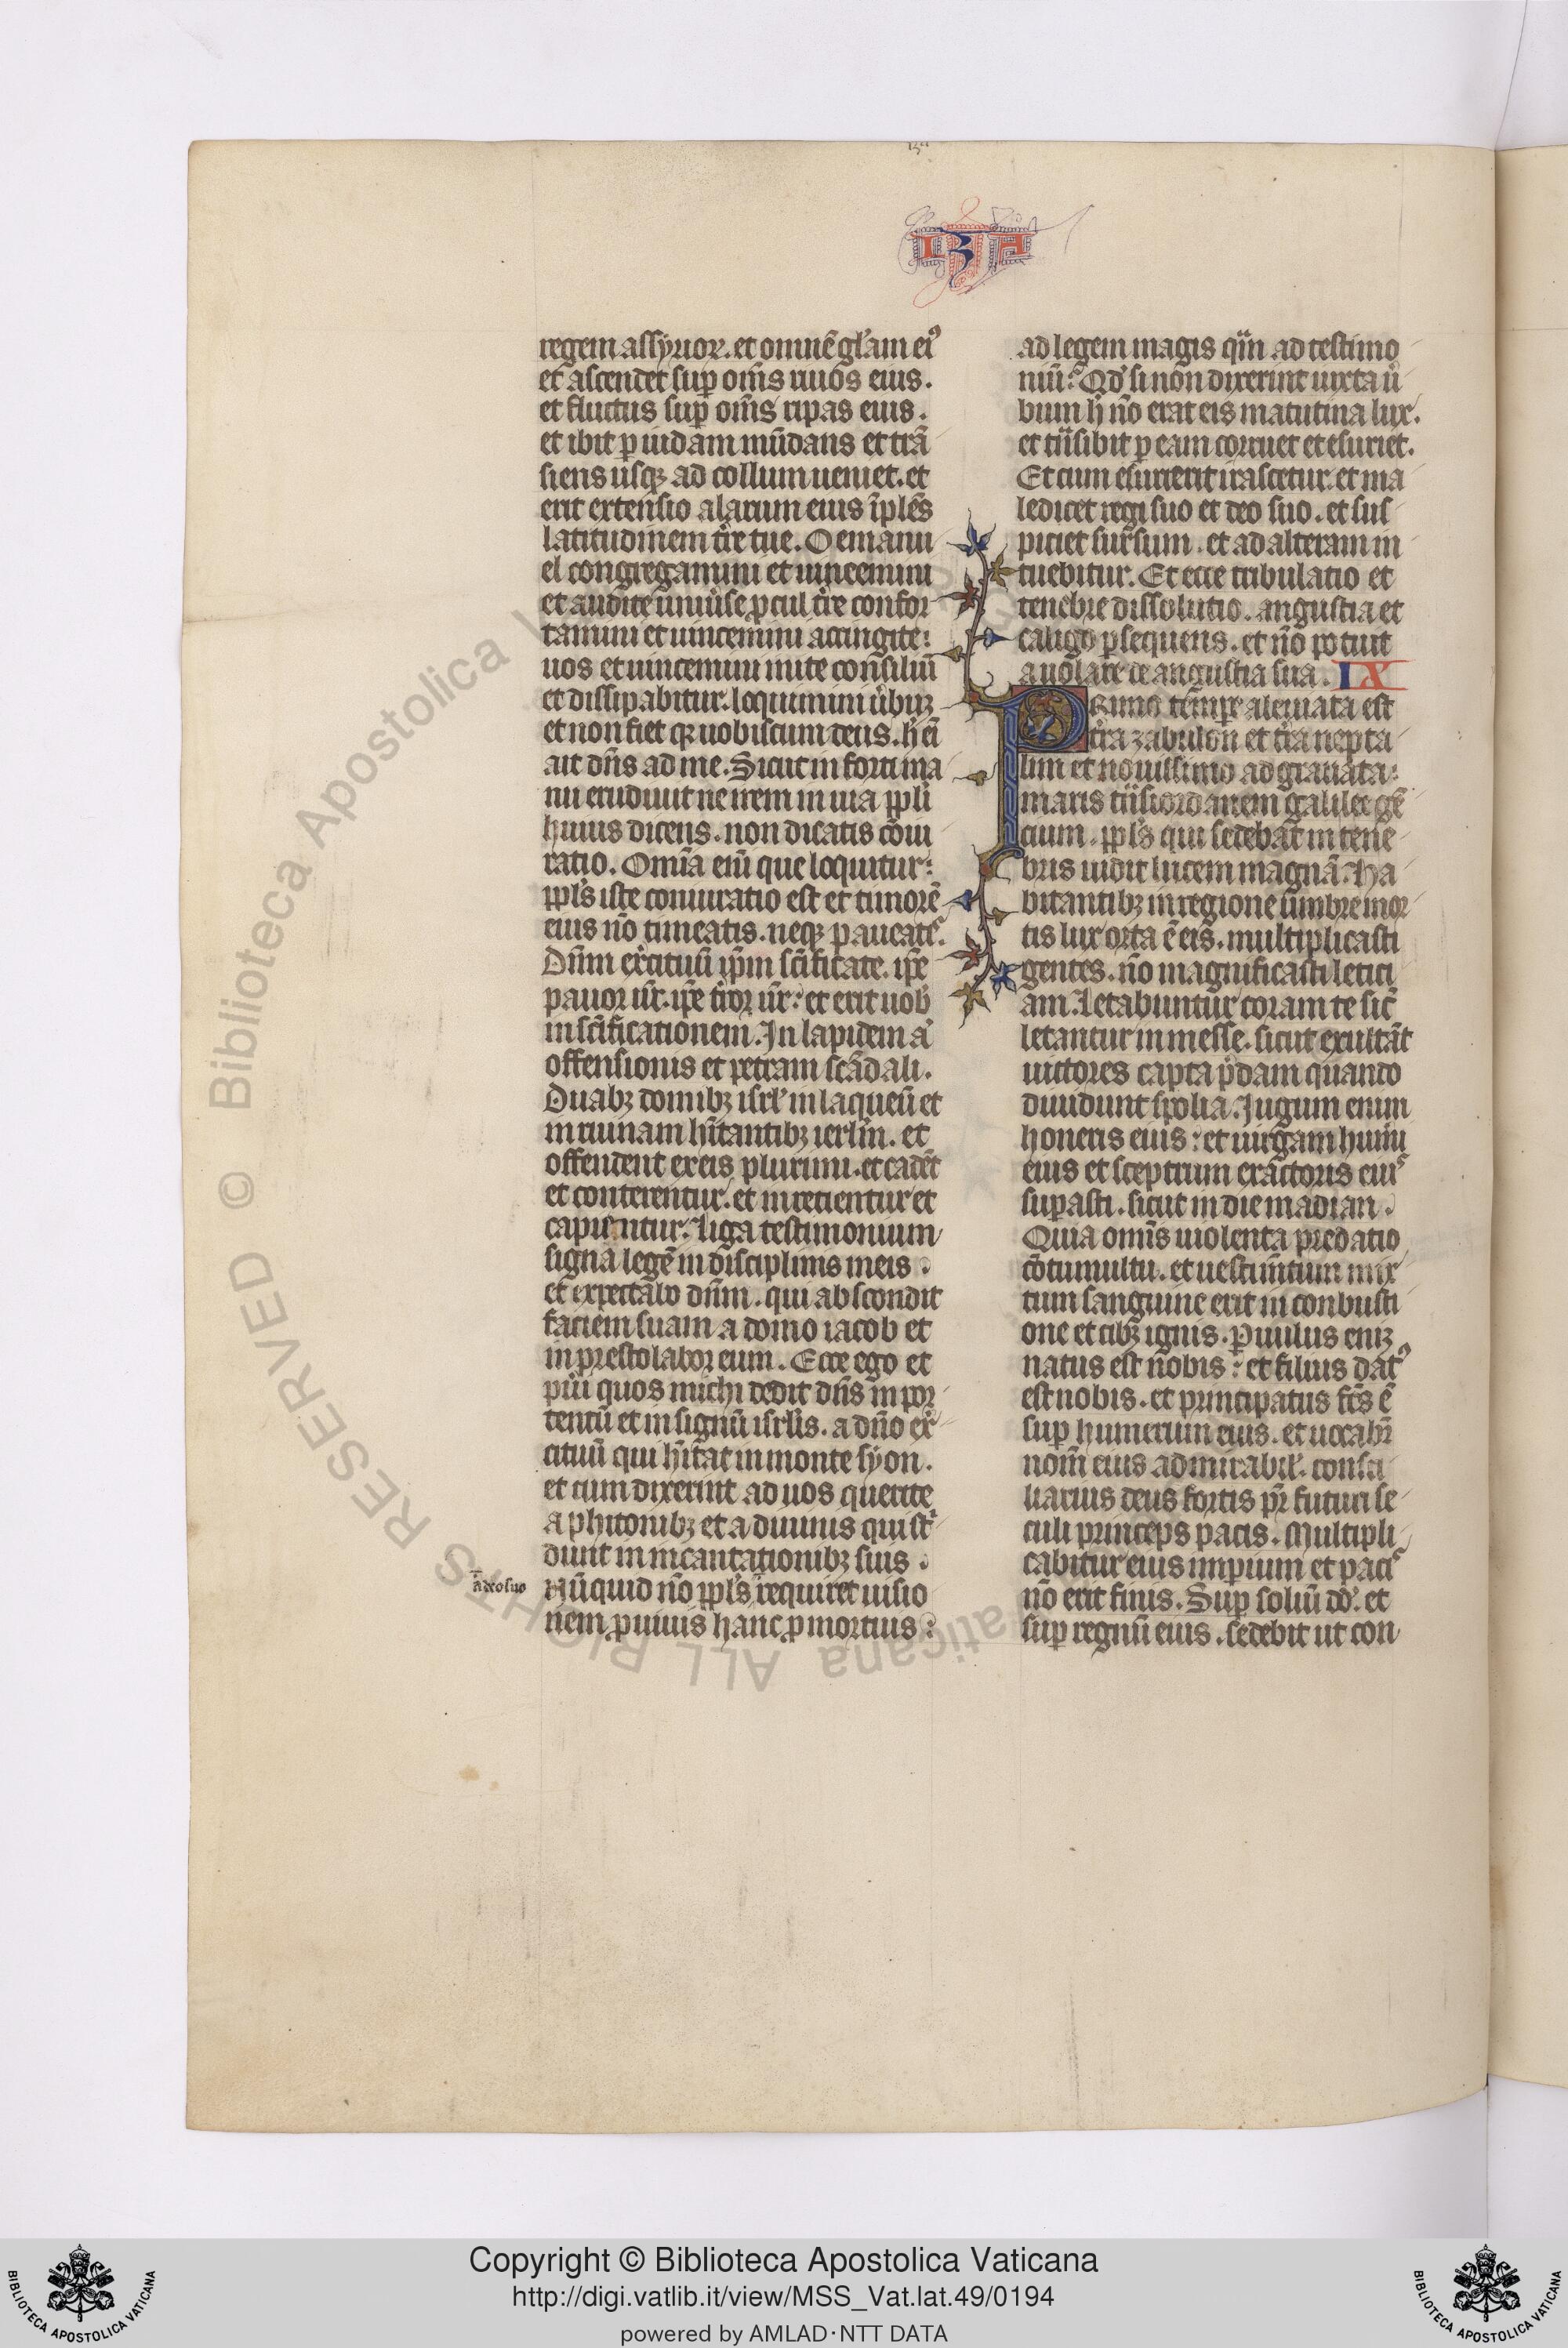 ysa
YSA
regem assyrior. et omnē gl'am ei9
et ascendet sup om̄s riuos eius.
et fluctus sup om̄s ripas eius.
et ibit p iudam mūdans et trā
siens usqꝫ ad collum ueniet. et
erit extensio alarum eius īplēs
latitudinem t̄re tue. O emanu
el congregamini et uincemini
et audite uniu̾se ꝓcul t̄re confor
tamini et uincemini accingite:
uos et uincemini inite consiliū
et dissipabitur. loquimini u̾bū
et non fiet qꝫ nobiscum deus. h̾ eī
ait dn̄s ad me. Sicut in forti ma
nu erudiuit ne irem in uia ppl'i
huius dicens. non dicatis cōiu
ratio. Omīa enī que loquitur:
ppl's iste coniuratio est et timorē
eius nō timeatis. neqꝫ paueatꝭ.
Dn̄m ex̾cituū ip̄m sc̄ificate. ip̄e
pauor ur̄. ip̄e t̾ror ur̄: et erit uob̾
in sc̄ificationem. In lapidem a̾
offensionis et petram scādali.
Duabꝫ domibꝫ isrl' in laqueū et
in ruinam hītantibꝫ ierlm̄. et
offendent ex eis plurimi. et cadēt
et conterentur. et irretientur et
capientur. Liga testimonium
signa legē in disciplinis meis.
et expectabo dn̄m. qui abscondit
faciem suam a domo iacob et
in prestolabor eum. Ecce ego et
pu̾i quos michi dedit dn̄s in por
tentū et in signū isrl'is. a dn̄o ex̾
cituū qui hītat in monte syon.
et cum dixerint ad uos querite
a phitonibꝫ et a diuinis qui st̾
dunt in incantationibꝫ suis.
a deo suo
Nūquid nō ppl's requiret uisio
nem ꝓ uiuis hanc ꝓ mortuis:
ad legem magis qm̄ ad testimo
niū: Qd' si non dixerint iuxta u̾
bum h̾ nō erat eis matutina lux.
et tn̄sibit p eam corruet et esuriet.
Et cum esurierit irascetur. et ma
ledicet regi suo et deo suo. et sus
piciet sursum. et ad alteram in
tuebitur. Et ecce tribulatio et
tenebre dissolutio. angustia et
caligo psequens. et nō potuit
auolare de angustia sua. IX
Primo tempr̄e aleuiata est
t̾ra zabulon et t̾ra nepta
lim et nouissimo adgrauata:
maris tn̄s iordanem galilee gē
tium. ppl's qui sedebat in tene
bris uidit lucem magnā. Ha
bitantibꝫ in regione umbre mor
tis lux orta ē eis. multiplicasti
gentes. nō magnificasti letici
am. Letabuntur coram te sic̄
letantur in messe. sicut exultāt
uictores capta p̾dam quando
diuidunt spolia. Iugum enim
honeris eius: et uirgam humi
eius et sceptrum exactoris eiuꝭ
supasti. sicut in die madian.
Quia omīs uiolenta predatio
cōtumultu. et uestimtum mix
tum sanguine erit in conbusti
one et cibꝫ ignis. Puulus enim
natus est nobis: et filius dat9
est nobis. et principatus fc̄s ē
sup humerum eius. et uocabr̄
nom̄ eius admirabil'. consi
liarius deus fortis pr̄ futuri se
culi princeps pacis. Multipli
cabitur eius impium et paciꝭ
nō erit finis. Sup soliū dd'. et
sup regnū eius. sedebit ut con
© Biblioteca Apostolica Vaticana ALL RIGHTS RESERVED
Copyright © Biblioteca Apostolica Vaticana
http://digi.vatlib.it/view/MSS_Vat.lat.49/0194
powered by AMLAD·NTT DATA
BIBLIOTECA APOSTOLICA VATICANA
BIBLIOTECA APOSTOLICA VATICANA